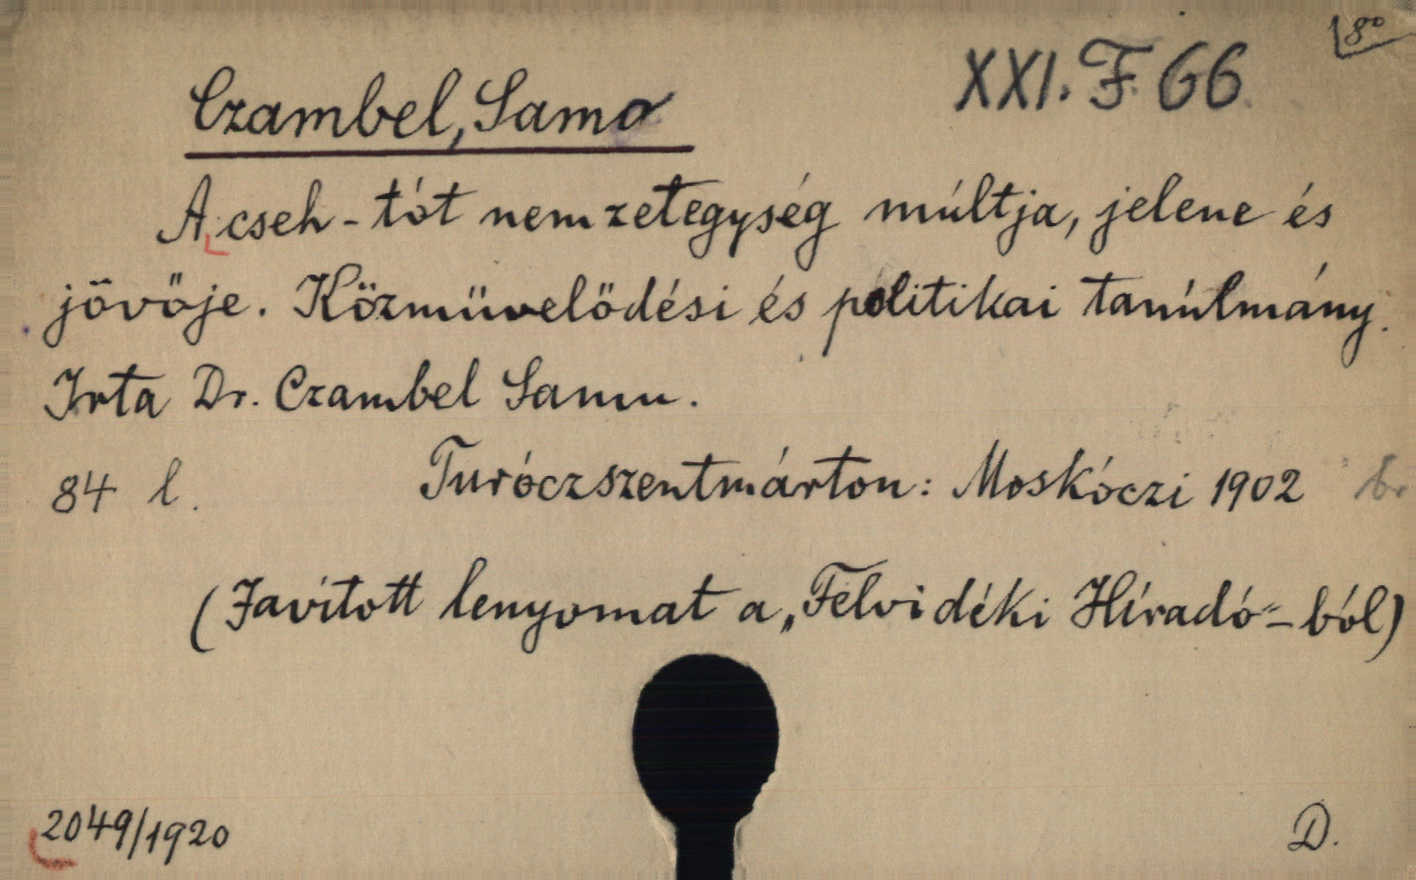 8°
XXI. F. 66
Czambel, Samo
A cseh-tót nemzetegység múltja, jelene és
jövője. Közművelődési és politikai tanúlmány.
Irta Dr. Czambel Samu.
84 l. Turóczszentmárton: Moskóczi 1902 br.
(Javított lenyomat a „Felvidéki Híradó"-ból)
2049/1920
D.